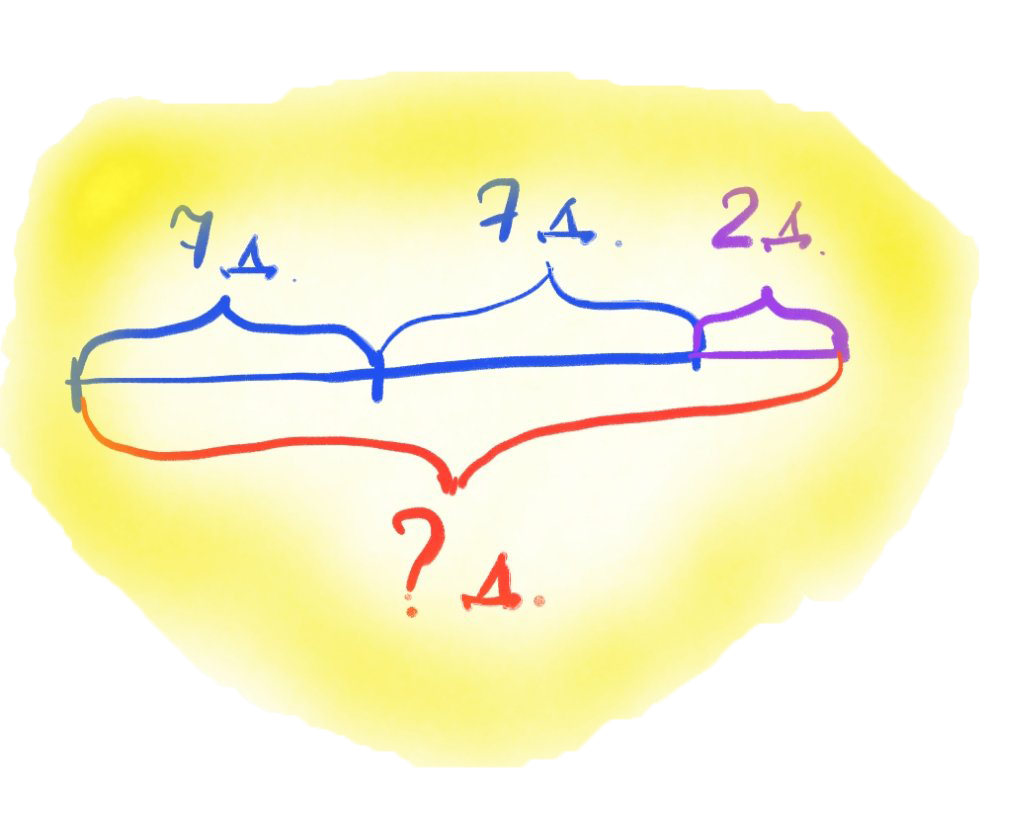 7 д. 7 д. 2 д.
? д.